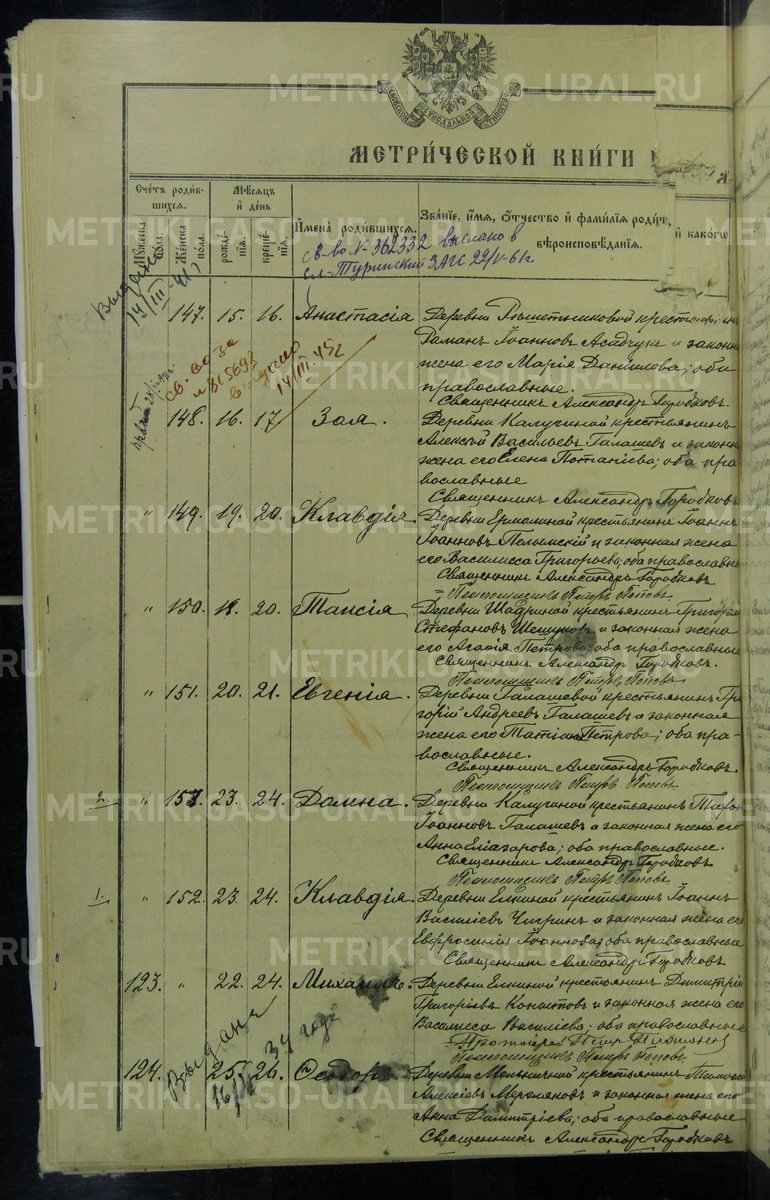 МЕТРИ́ЧЕСКОЙ КНИ́ГИ
Счётъ роди́вшихся.
Мужеска пола.
Женска пола.
Мѣсяцъ и день
рожде́нія.
креще́нія.
Имена роди́вшихся.
Зва́ніе, и́мя, о́тчество и фами́лія родит.
вѣроисповѣ́данія.
и како́го
св-во № 362332 выслано в
сл-Туринский ЗАГС 29/V-61г
Выдано
14/III 41 г
147. 15. 16. Анастасія
Деревни
Романъ Іоанновъ и законн
жена его Марія Данилова; оба
православные.
Священникъ Александръ Горобковъ.
св. воза
№ 315693
14/III 45г
148. 16. 17 Зоя.
Деревни Калугиной крестьянинъ
Алексій Васильевъ Галашевъ и законн
жена его Елена; оба пра
вославные
Священникъ Александръ Горобковъ
" 149. 19. 20. Клавдія.
Деревни Ермолиной крестьянинъ Іоаннъ
Іоанновъ Пелымскій и законная жена
его Василисса Григорьева; оба православные
Священникъ Александръ Горобковъ
Псаломщикъ Петръ Поповъ
" 150. 18. 20. Таисія.
Деревни Шадриной крестьянинъ Григорій
Стефановъ и законная жена
его Агафія Петрова; оба православные
Священникъ Александръ Горобковъ.
Псаломщикъ Петръ Поповъ
" 151. 20. 21. Евгенія.
Деревни Галашевой крестьянинъ Гри
горій Андреевъ Галашевъ и законная
жена его Татіана Петрова; оба пра-
вославные.
Священникъ Александръ Горобковъ.
Псаломщикъ Петръ Поповъ
2. " 152. 23. 24. Домна.
Деревни Калугиной крестьянинъ
Іоанновъ Галашевъ и законная жена его
Анна Елазарова; оба православные.
Священникъ Александръ Горобковъ
Псаломщикъ Петръ Поповъ
1. " 152. 23. 24. Клавдія.
Деревни Елкиной крестьянинъ Іоаннъ
Василіевъ Чигринъ и законная жена его
Евфросинія Іоаннова; оба православные
Священникъ Александръ Горобковъ.
123. " 22. 24. Михаилъ.
Деревни Елкиной крестьянинъ Димитрій
Григоріевъ и законная жена его
Василисса Василіева; оба православные
Псаломщикъ Петръ Поповъ
Выдана
34 года
124. 25. 26. Ѳеодоръ.
Деревни крестьянинъ
Алексіевъ Мерзляковъ и законная жена его
Анна Димитріева; оба православные
Священникъ Александръ Горобковъ
METRIKI.GASO-URAL.RU